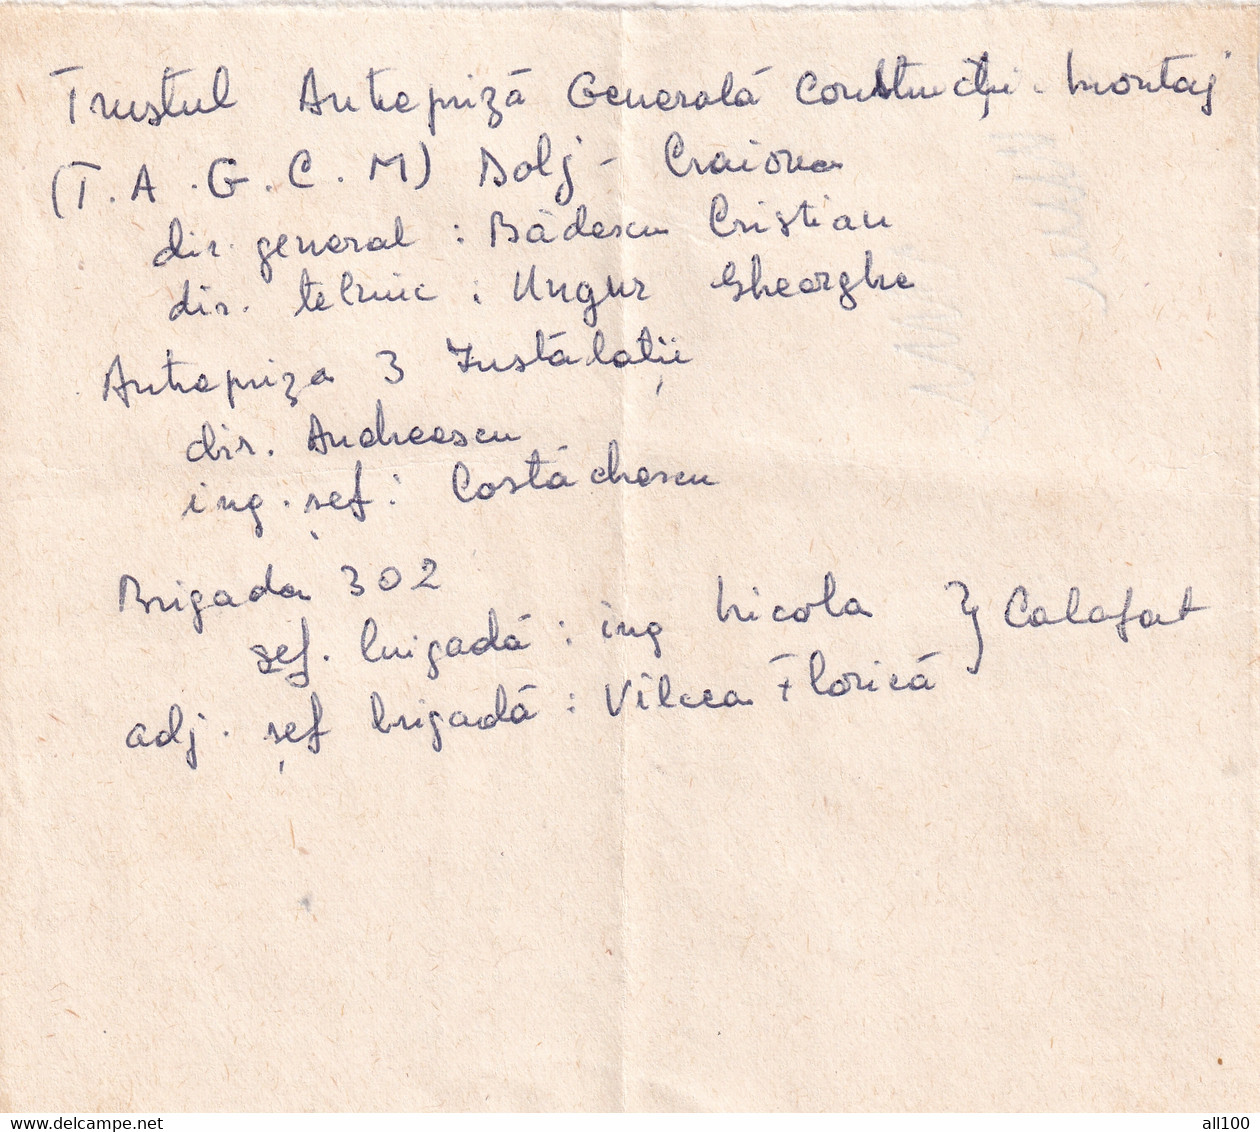 Trustul Antrepriză Generală Construcții-Montaj
(T.A.G.C.M) Dolj - Craiova
dir. general : Bădescu Cristian
dir. tehnic : Ungur Gheorghe
Antrepriza 3 Instalații
dir. Andreescu
ing. șef : Costăchescu
Brigada 302
șef. brigadă : ing Nicola } Calafat
adj. șef brigadă : Vîlcea Florică
www.delcampe.net
all100